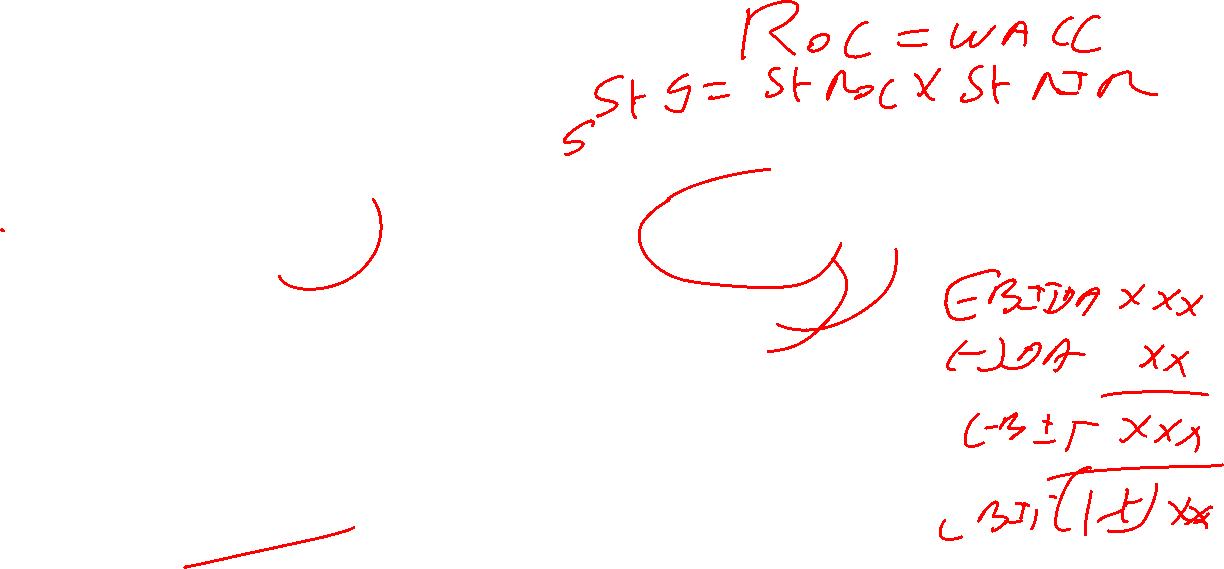 ROC = WACC
St g = St ROC X St RIR
S
EBITDA XXX
(-) DA XX
EBIT XXX
EBIT (1-t) XX